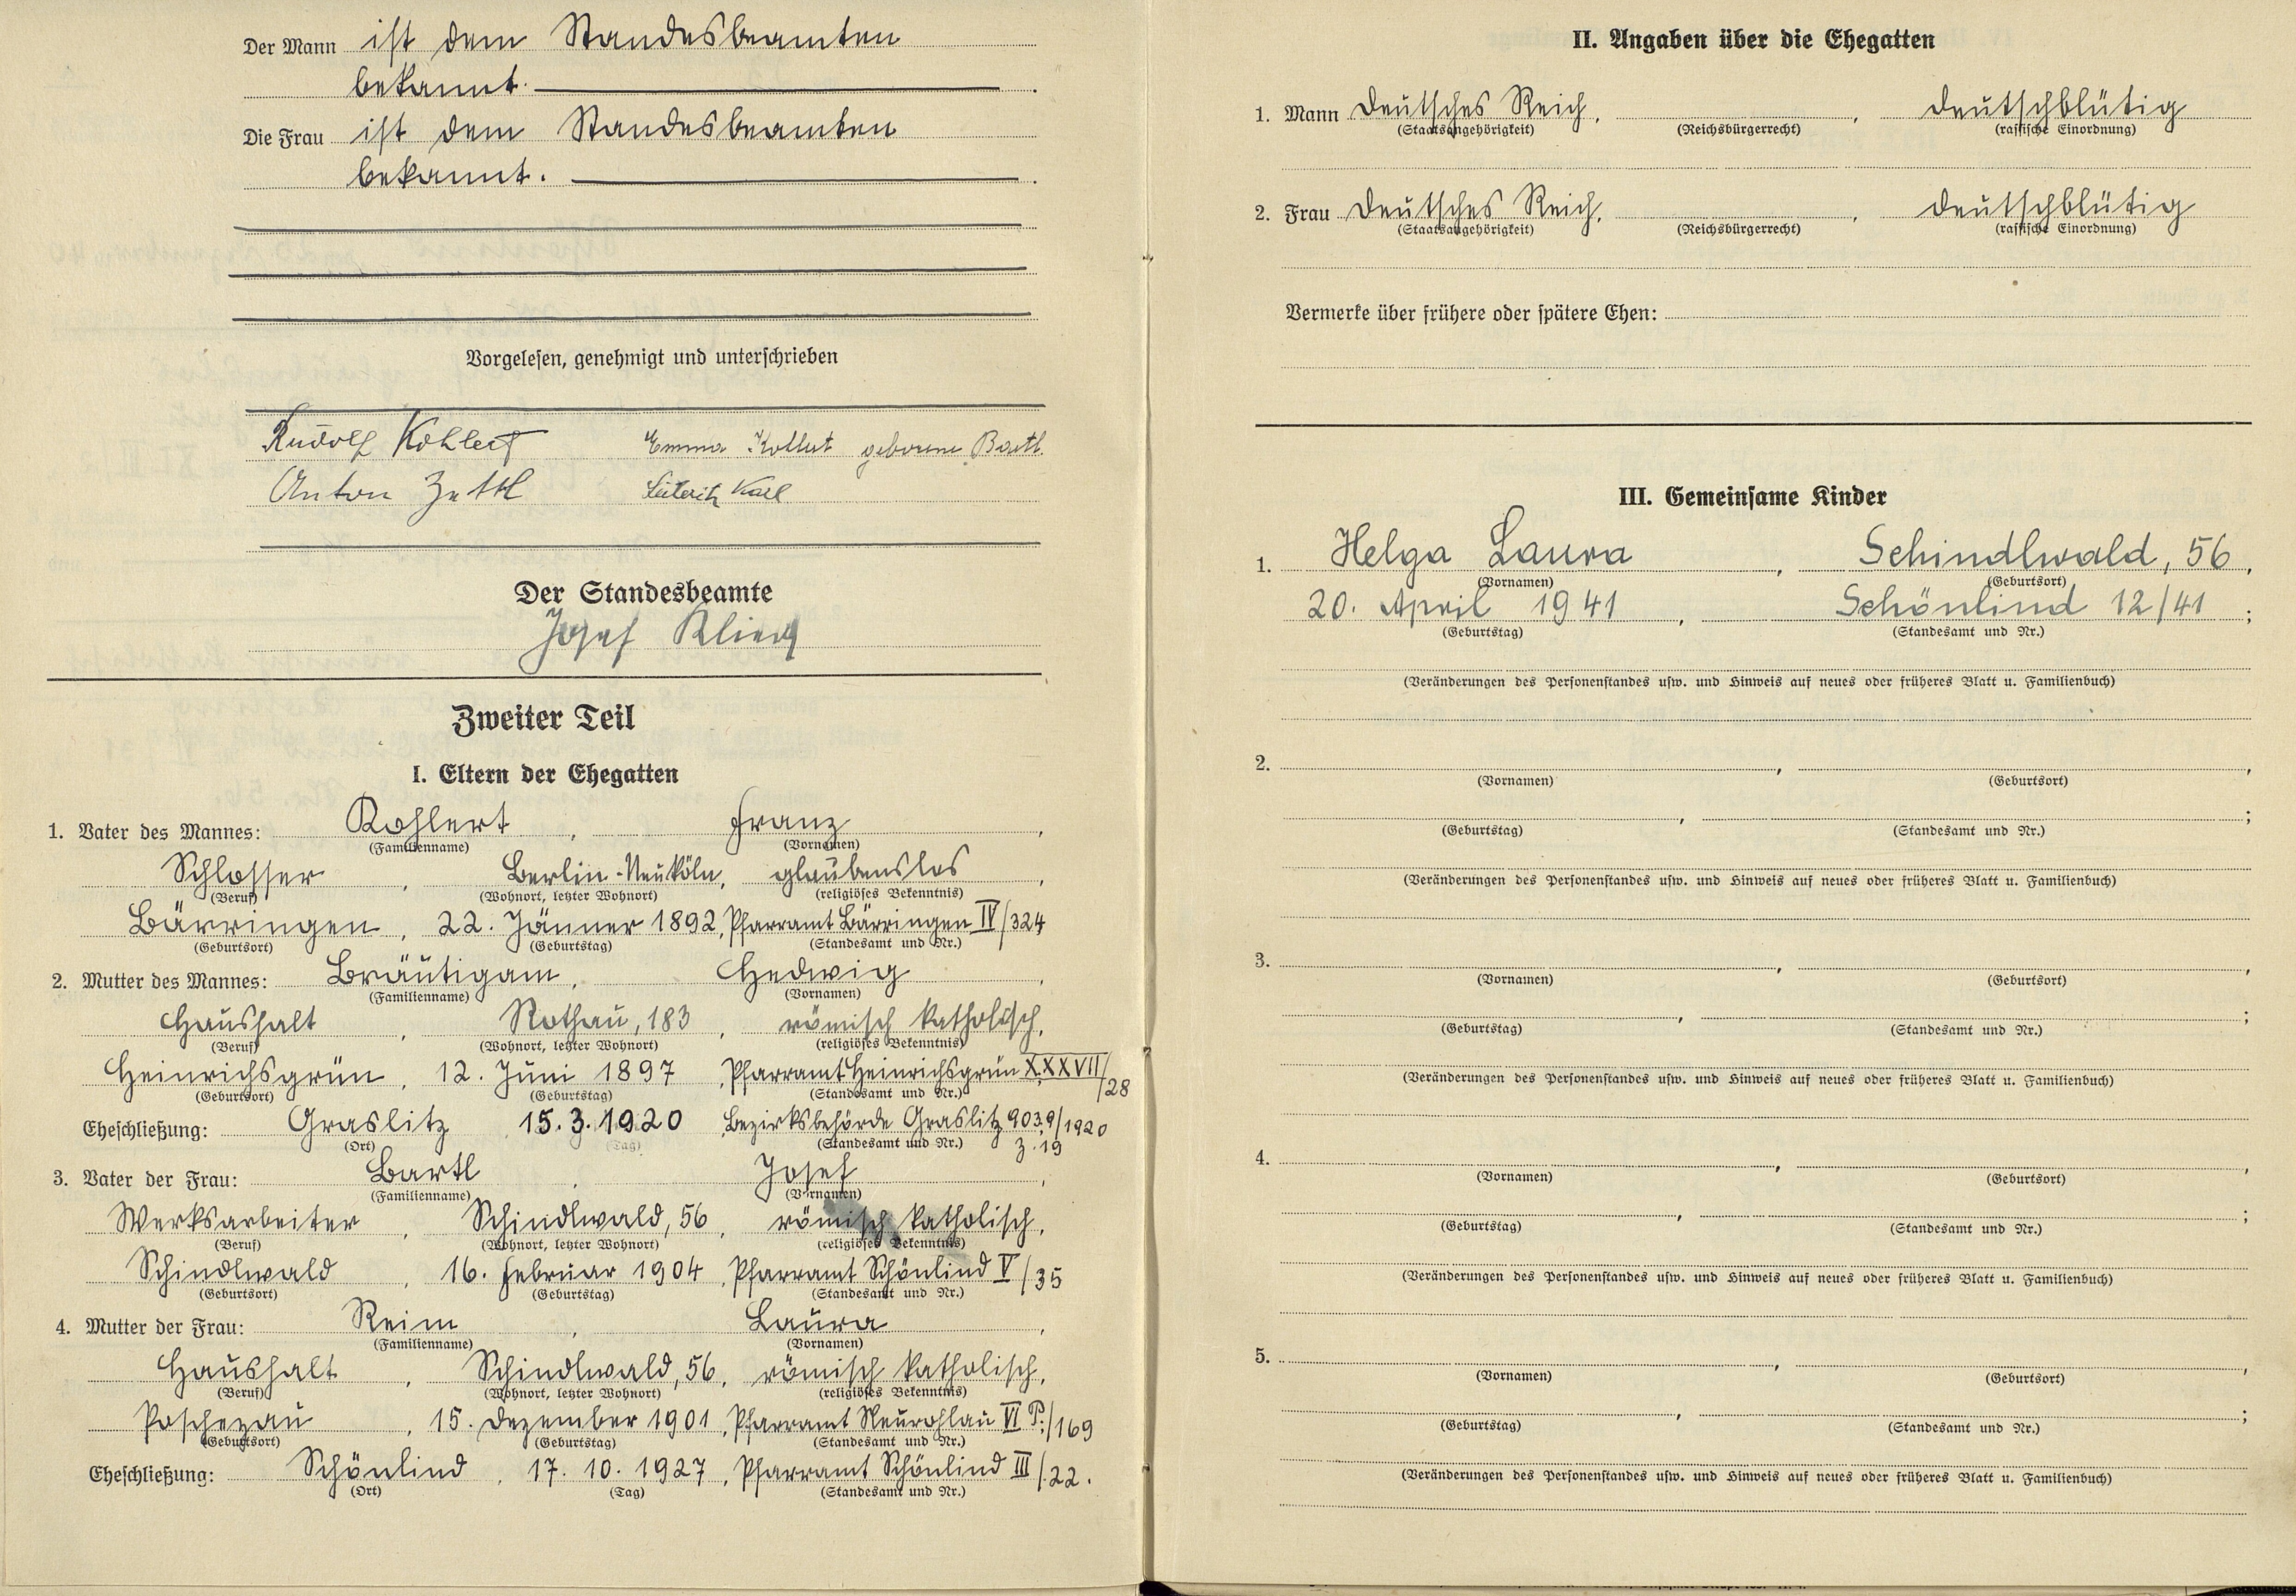 Der Mann ist dem Standesbeamten
bekannt.
Die Frau ist dem Standesbeamten
bekannt.
Vorgelesen, genehmigt und unterschrieben
Rudolf Kohlert Emma Kohlert geborene Bartl
Anton Zettl Karl
Der Standesbeamte
Josef
Zweiter Teil
I. Eltern der Ehegatten
1. Vater des Mannes: Kohlert, Franz,
(Familienname) (Vornamen)
Schlosser, Berlin-Neuköln, glaubenslos,
(Beruf) (Wohnort, letzter Wohnort) (religiöses Bekenntnis)
Bärringen, 22. Jänner 1892, Pfarramt Bärringen IV/324
(Geburtsort) (Geburtstag) (Standesamt und Nr.)
2. Mutter des Mannes: Bräutigam, Hedwig,
(Familienname) (Vornamen)
Haushalt, Rothau, 183, römisch katholisch,
(Beruf) (Wohnort, letzter Wohnort) (religiöses Bekenntnis)
Heinrichsgrün, 12. Juni 1897, Pfarramt Heinrichsgrün XXXVII/28
(Geburtsort) (Geburtstag) (Standesamt und Nr.)
Eheschließung: Graslitz 15.3.1920, Bezirksbehörde Graslitz 9039/1920
(Ort) (Tag) (Standesamt und Nr.) Z. 19
3. Vater der Frau: Bartl, Josef,
(Familienname) (Vornamen)
Werksarbeiter, Schindlwald, 56, römisch katholisch,
(Beruf) (Wohnort, letzter Wohnort) (religiöses Bekenntnis)
Schindlwald, 16. Februar 1904, Pfarramt Schönlind V/35
(Geburtsort) (Geburtstag) (Standesamt und Nr.)
4. Mutter der Frau: Reim, Laura,
(Familienname) (Vornamen)
Haushalt, Schindlwald, 56, römisch katholisch,
(Beruf) (Wohnort, letzter Wohnort) (religiöses Bekenntnis)
Poschezau, 15. Dezember 1901, Pfarramt Neurohlau VI P./169
(Geburtsort) (Geburtstag) (Standesamt und Nr.)
Eheschließung: Schönlind, 17. 10. 1927, Pfarramt Schönlind III/22.
(Ort) (Tag) (Standesamt und Nr.)
II. Angaben über die Ehegatten
1. Mann Deutsches Reich, , deutschblütig
(Staatsangehörigkeit) (Reichsbürgerrecht) (rassische Einordnung)
2. Frau Deutsches Reich, , deutschblütig
(Staatsangehörigkeit) (Reichsbürgerrecht) (rassische Einordnung)
Vermerke über frühere oder spätere Ehen:
III. Gemeinsame Kinder
1. Helga Laura, Schindlwald, 56,
(Vornamen) (Geburtsort)
20. April 1941, Schönlind 12/41;
(Geburtstag) (Standesamt und Nr.)
(Veränderungen des Personenstandes usw. und Hinweis auf neues oder früheres Blatt u. Familienbuch)
2. , ,
(Vornamen) (Geburtsort)
, ;
(Geburtstag) (Standesamt und Nr.)
(Veränderungen des Personenstandes usw. und Hinweis auf neues oder früheres Blatt u. Familienbuch)
3. , ,
(Vornamen) (Geburtsort)
, ;
(Geburtstag) (Standesamt und Nr.)
(Veränderungen des Personenstandes usw. und Hinweis auf neues oder früheres Blatt u. Familienbuch)
4. , ,
(Vornamen) (Geburtsort)
, ;
(Geburtstag) (Standesamt und Nr.)
(Veränderungen des Personenstandes usw. und Hinweis auf neues oder früheres Blatt u. Familienbuch)
5. , ,
(Vornamen) (Geburtsort)
, ;
(Geburtstag) (Standesamt und Nr.)
(Veränderungen des Personenstandes usw. und Hinweis auf neues oder früheres Blatt u. Familienbuch)